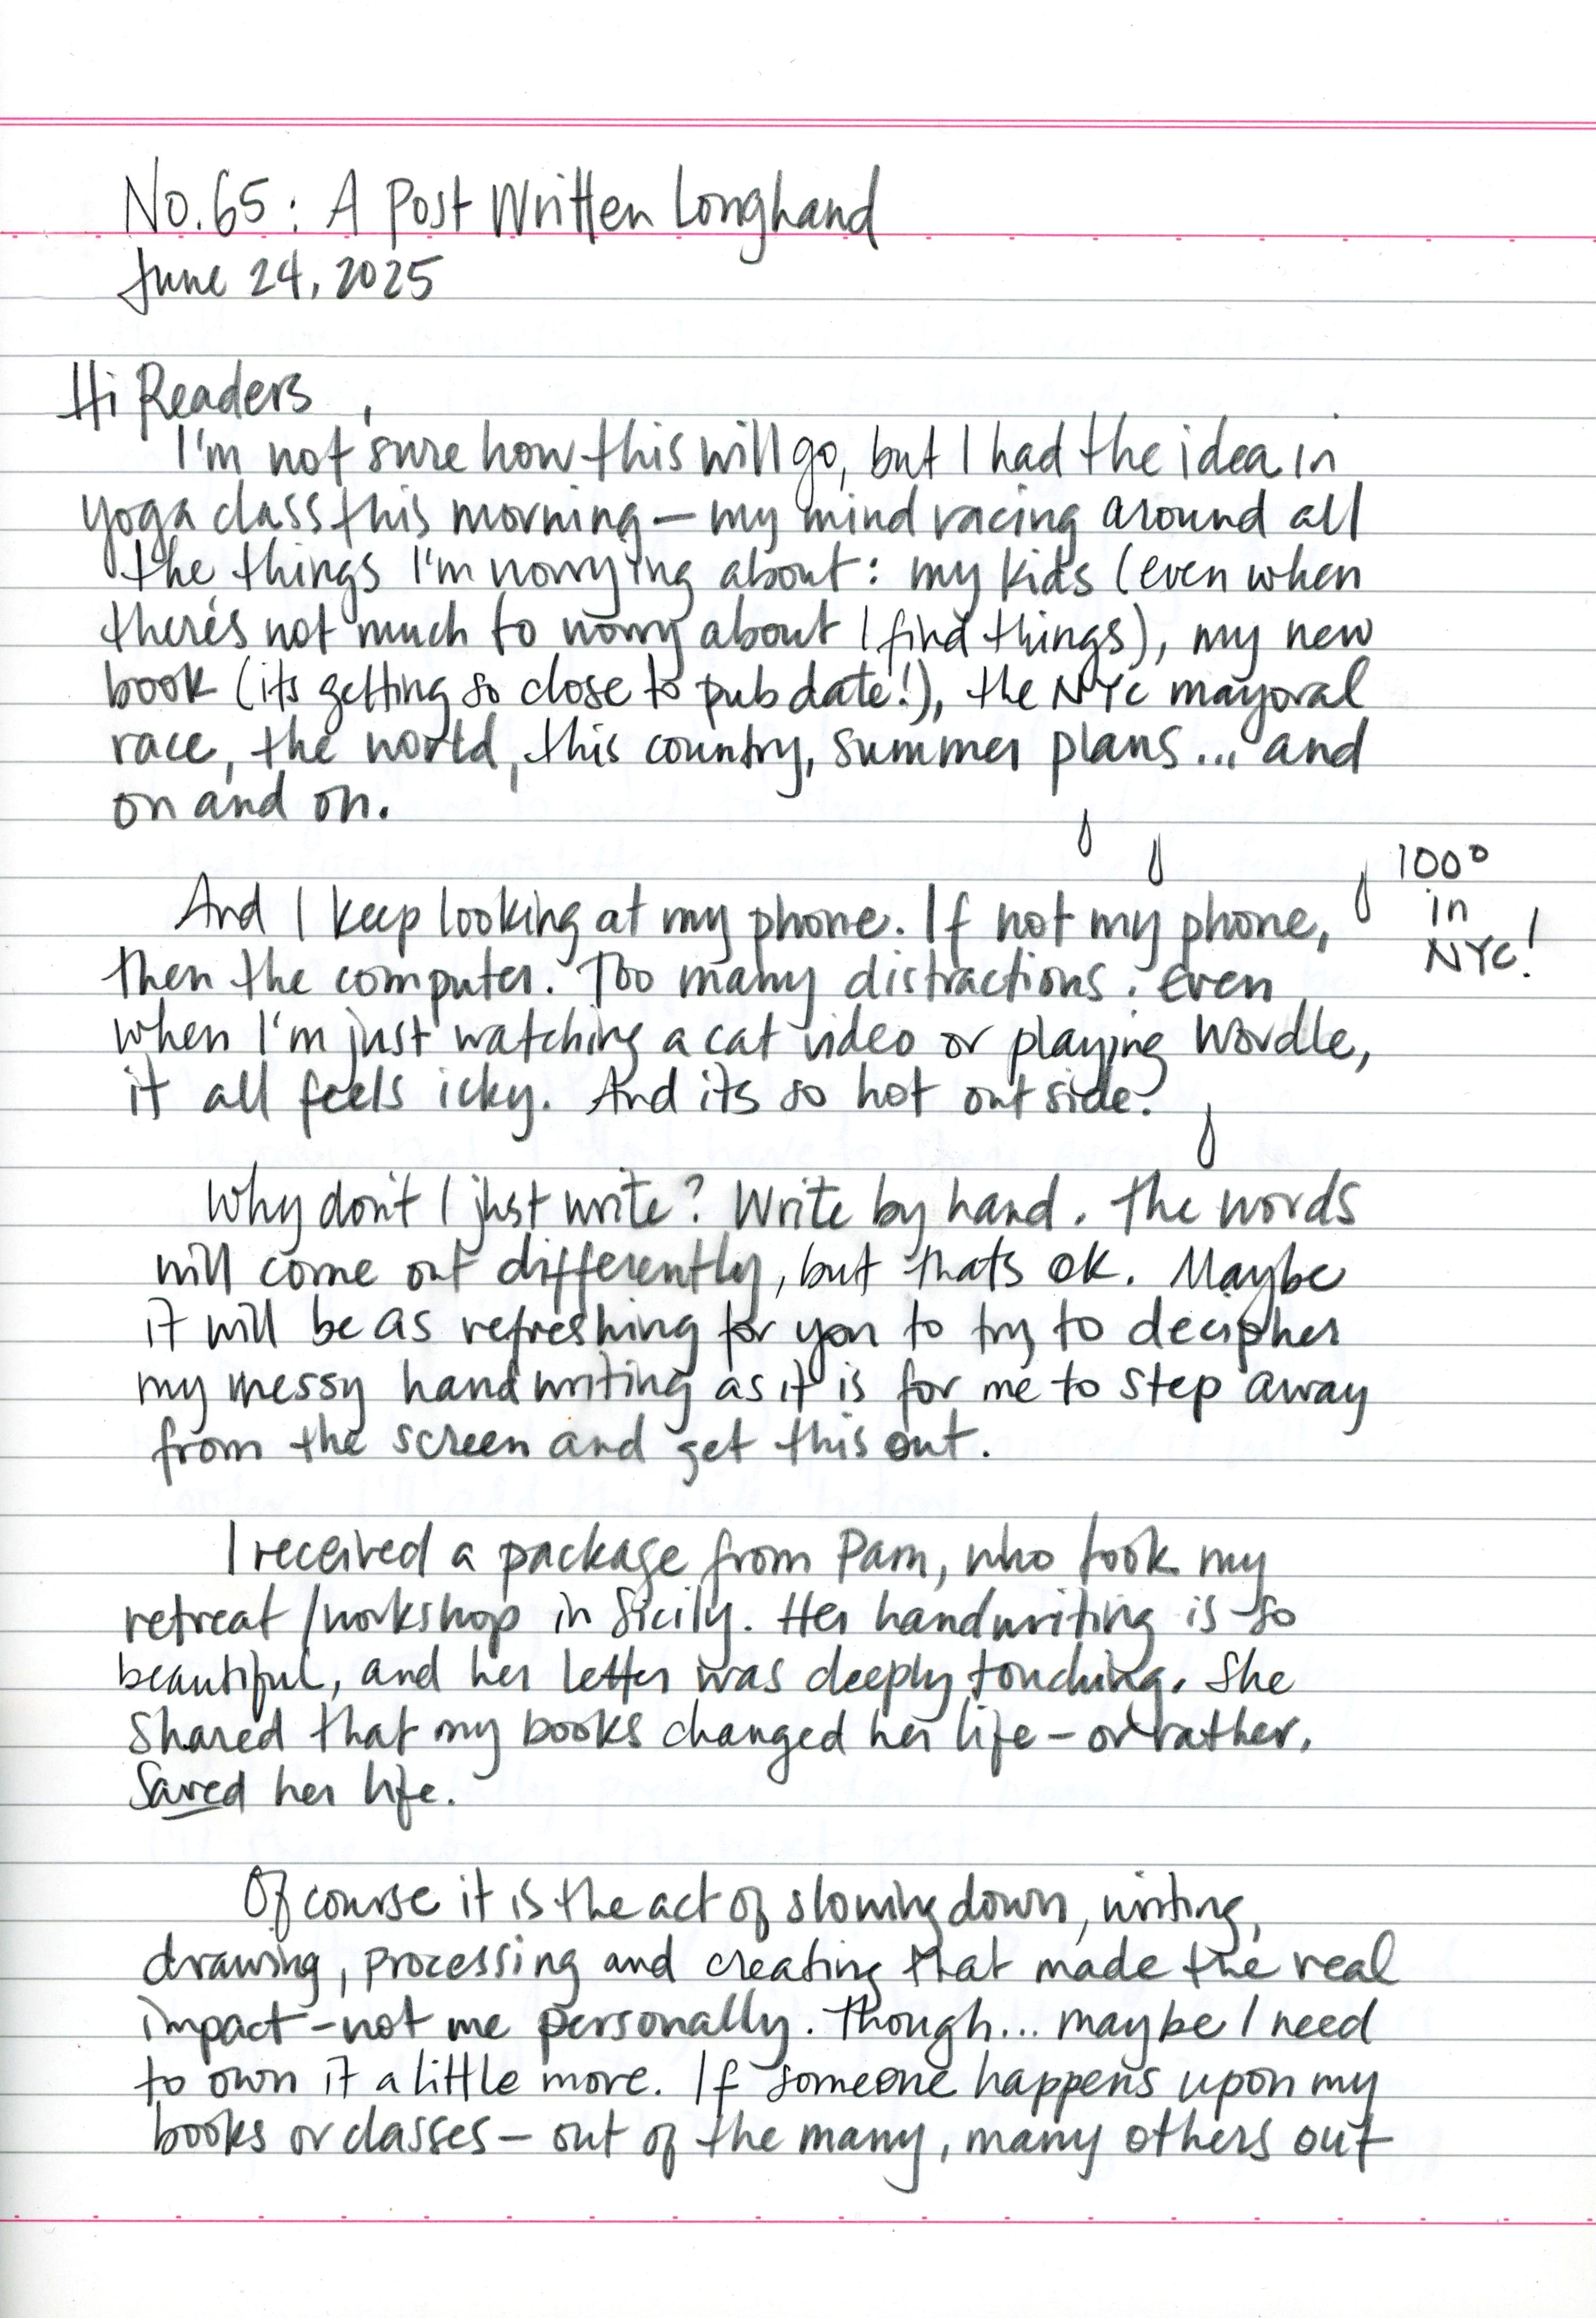 No. 65: A Post Written Longhand
June 24, 2025
Hi Readers,
I'm not sure how this will go, but I had the idea in
yoga class this morning — my mind racing around all
the things I'm worrying about: my kids (even when
there's not much to worry about I find things), my new
book (its getting so close to pub date!), the NYC mayoral
race, the world, this country, summer plans... and
on and on.
100°
in
NYC!
And I keep looking at my phone. If not my phone,
then the computer. Too many distractions. Even
when I'm just watching a cat video or playing Wordle,
it all feels icky. And its so hot outside.
Why don't I just write? Write by hand. The words
will come out differently, but thats OK. Maybe
it will be as refreshing for you to try to decipher
my messy handwriting as it is for me to step away
from the screen and get this out.
I received a package from Pam, who took my
retreat/workshop in Sicily. Her handwriting is so
beautiful, and her letter was deeply touching. She
shared that my books changed her life — or rather,
saved her life.
Of course it is the act of slowing down, writing,
drawing, processing and creating that made the real
impact - not me personally. Though... maybe I need
to own it a little more. If someone happens upon my
books or classes — out of the many, many others out